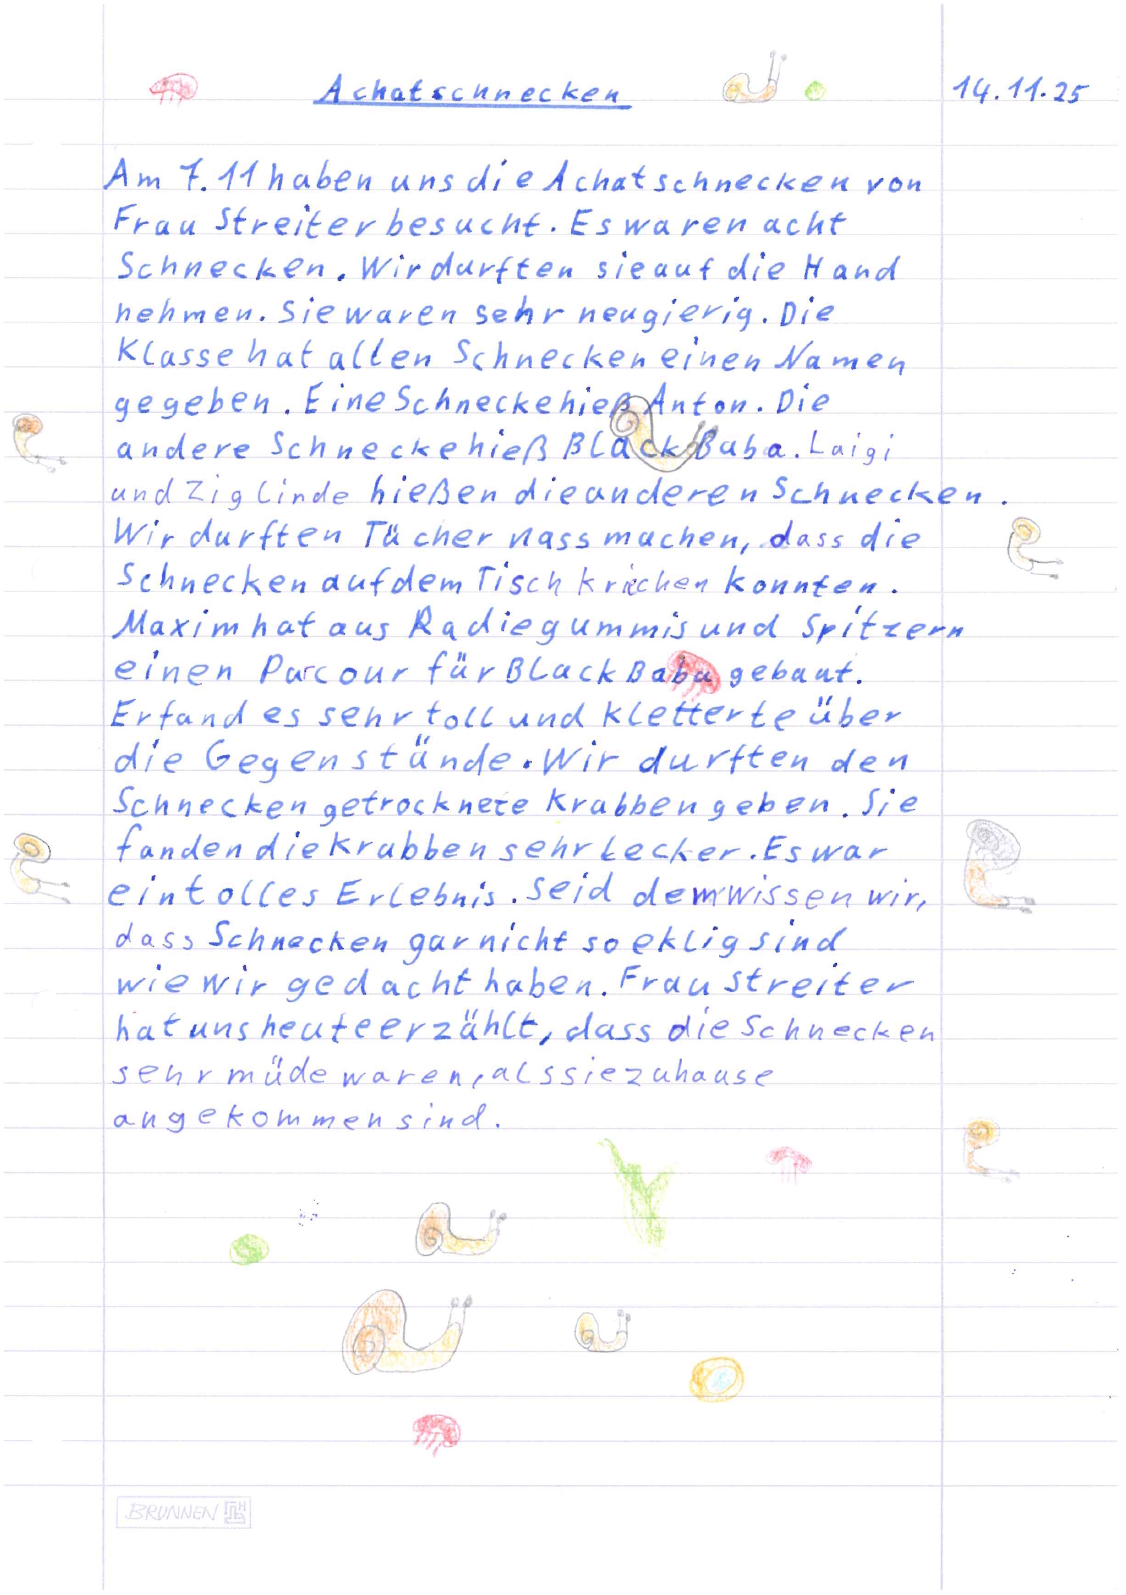 Achatschnecken 14.11.25
Am 7.11 haben uns die Achatschnecken von
Frau Streiter besucht. Es waren acht
Schnecken. Wir durften sie auf die Hand
nehmen. Sie waren sehr neugierig. Die
Klasse hat allen Schnecken einen Namen
gegeben. Eine Schnecke hieß Anton. Die
andere Schnecke hieß Black Baba. Laigi
und Ziglinde hießen die anderen Schnecken.
Wir durften Tücher nass machen, dass die
Schnecken auf dem Tisch kriechen konnten.
Maxim hat aus Radiegummis und Spitzern
einen Parcour für Black Baba gebaut.
Er fand es sehr toll und kletterte über
die Gegenstände. Wir durften den
Schnecken getrocknete Krabben geben. Sie
fanden die Krabben sehr lecker. Es war
ein tolles Erlebnis. Seid dem wissen wir,
dass Schnecken gar nicht so eklig sind
wie wir gedacht haben. Frau Streiter
hat uns heute erzählt, dass die Schnecken
sehr müde waren, als sie zuhause
angekommen sind.
BRUNNEN